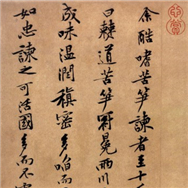 余酷嗜苦笋諫者至十
曰僰道苦笋冠冕兩川
成味温潤縝密多啗而
如忠諫之可活國多而不